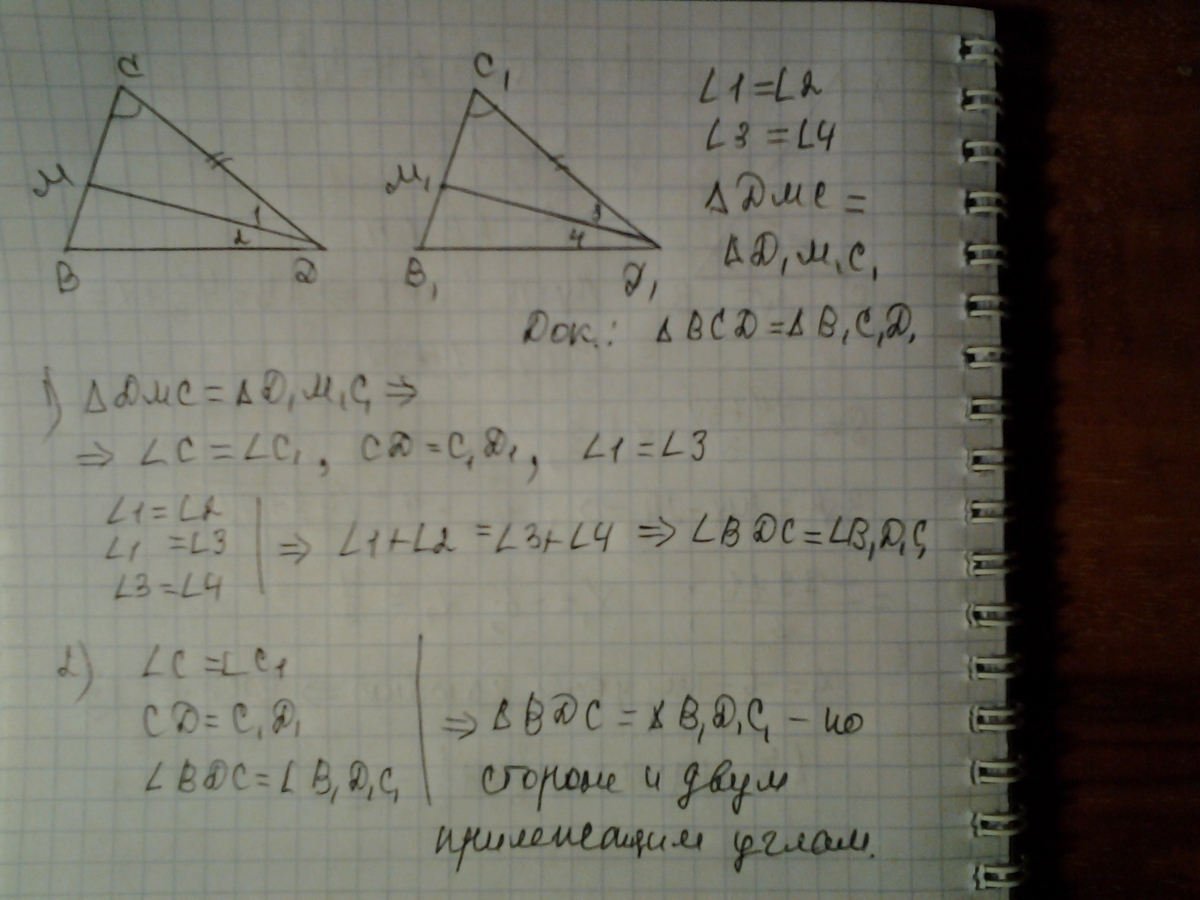 C
M
1
2
B
D
C₁
M₁
3
4
B₁
D₁
∠1=∠2
∠3=∠4
ΔDMC=
ΔD₁M₁C₁
Док.: ΔBCD=ΔB₁C₁D₁
1) ΔDMC=ΔD₁M₁C₁ ⇒
⇒ ∠C=∠C₁, CD=C₁D₁, ∠1=∠3
∠1=∠2
∠1=∠3
∠3=∠4
⇒ ∠1+∠2=∠3+∠4 ⇒ ∠BDC=∠B₁D₁C₁
2) ∠C=∠C₁
CD=C₁D₁
∠BDC=∠B₁D₁C₁
⇒ ΔBDC=ΔB₁D₁C₁ – по
стороне и двум
прилежащим углам.